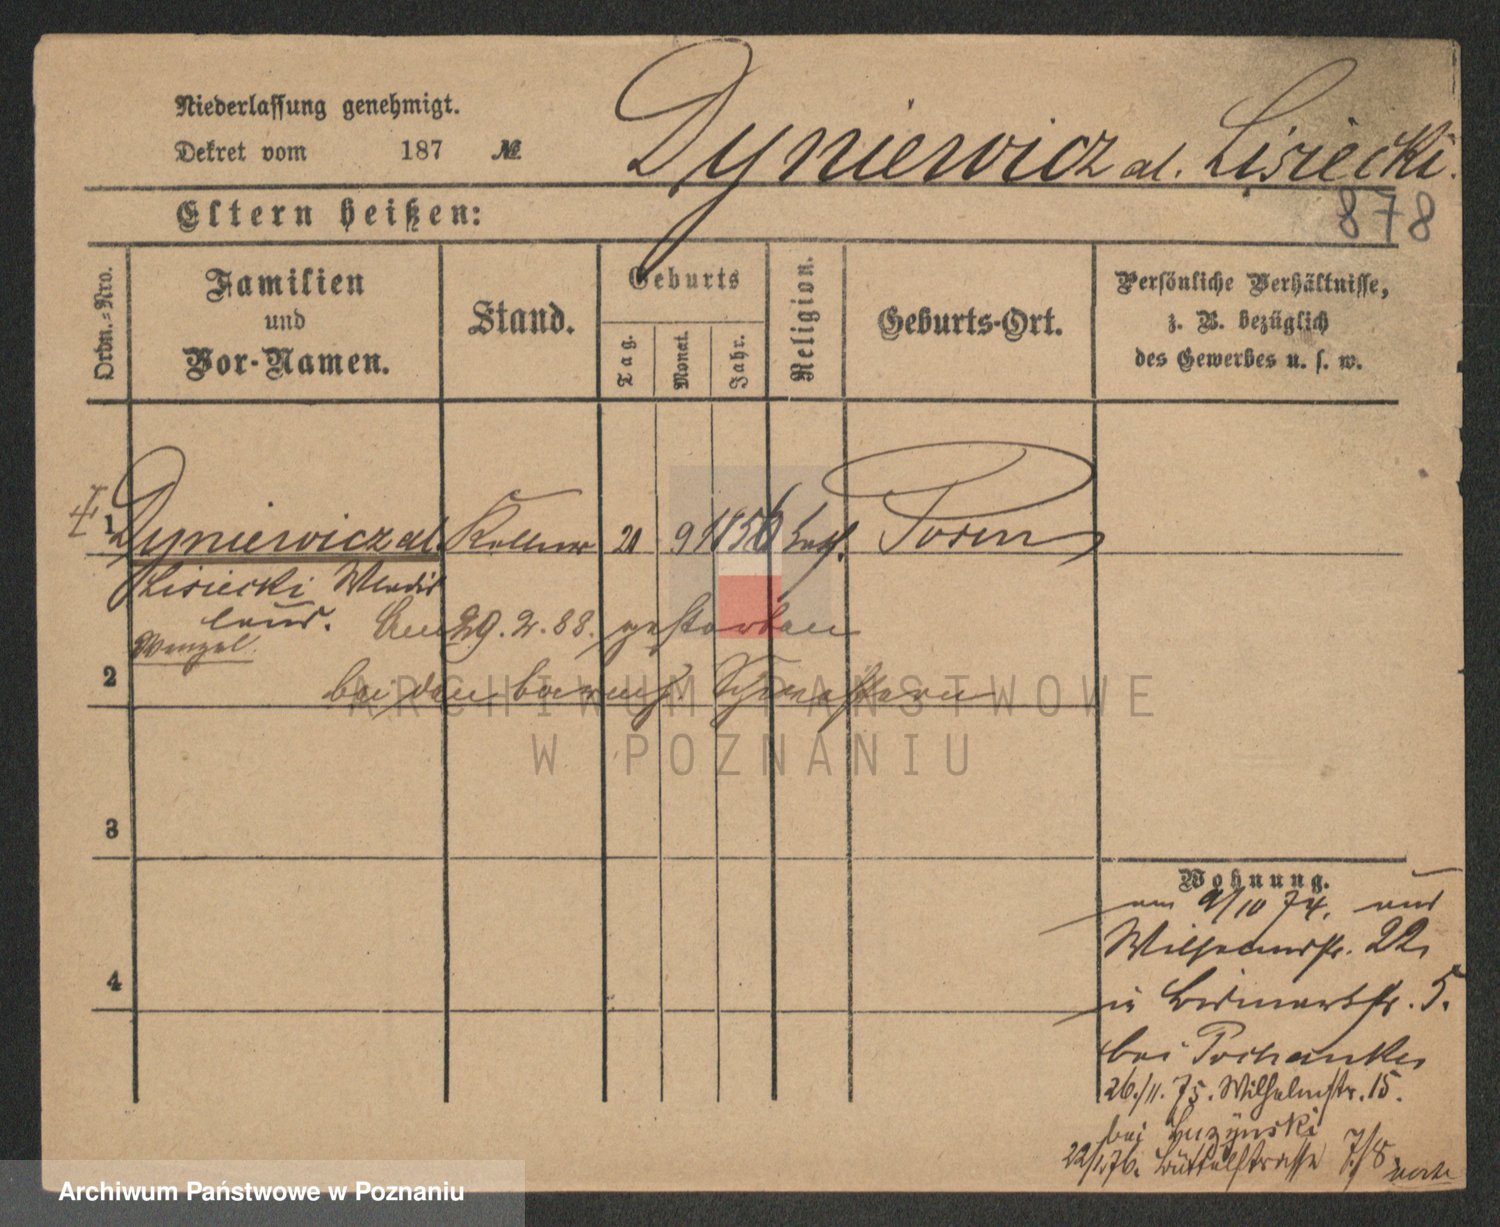 Niederlassung genehmigt.
Dekret vom 187 №
Dyniewicz al. Lisiecki.
878
Eltern heißen:
Ordn.-Nro.
Familien
und
Vor-Namen.
Stand.
Geburts
Tag.
Monat.
Jahr.
Religion.
Geburts-Ort.
Persönliche Verhältnisse,
z. B. bezüglich
des Gewerbes u. s. w.
1 Dyniewicz al. Kellner 9 1856 kath. Posen
Lisiecki Wladis
laus.
Wenzel.
Am 29. 2. 88. gestorben
2
bei den barmh. Schwestern
3
4
Wohnung.
am 2/10 74. aus
Wilhelmstr. 22
in Bismarkstr. 5.
bei
26./11. 75. Wilhelmstr. 15.
bei
22/1. 76. Büttelstrasse 7/8
ARCHIWUM PAŃSTWOWE
W POZNANIU
Archiwum Państwowe w Poznaniu